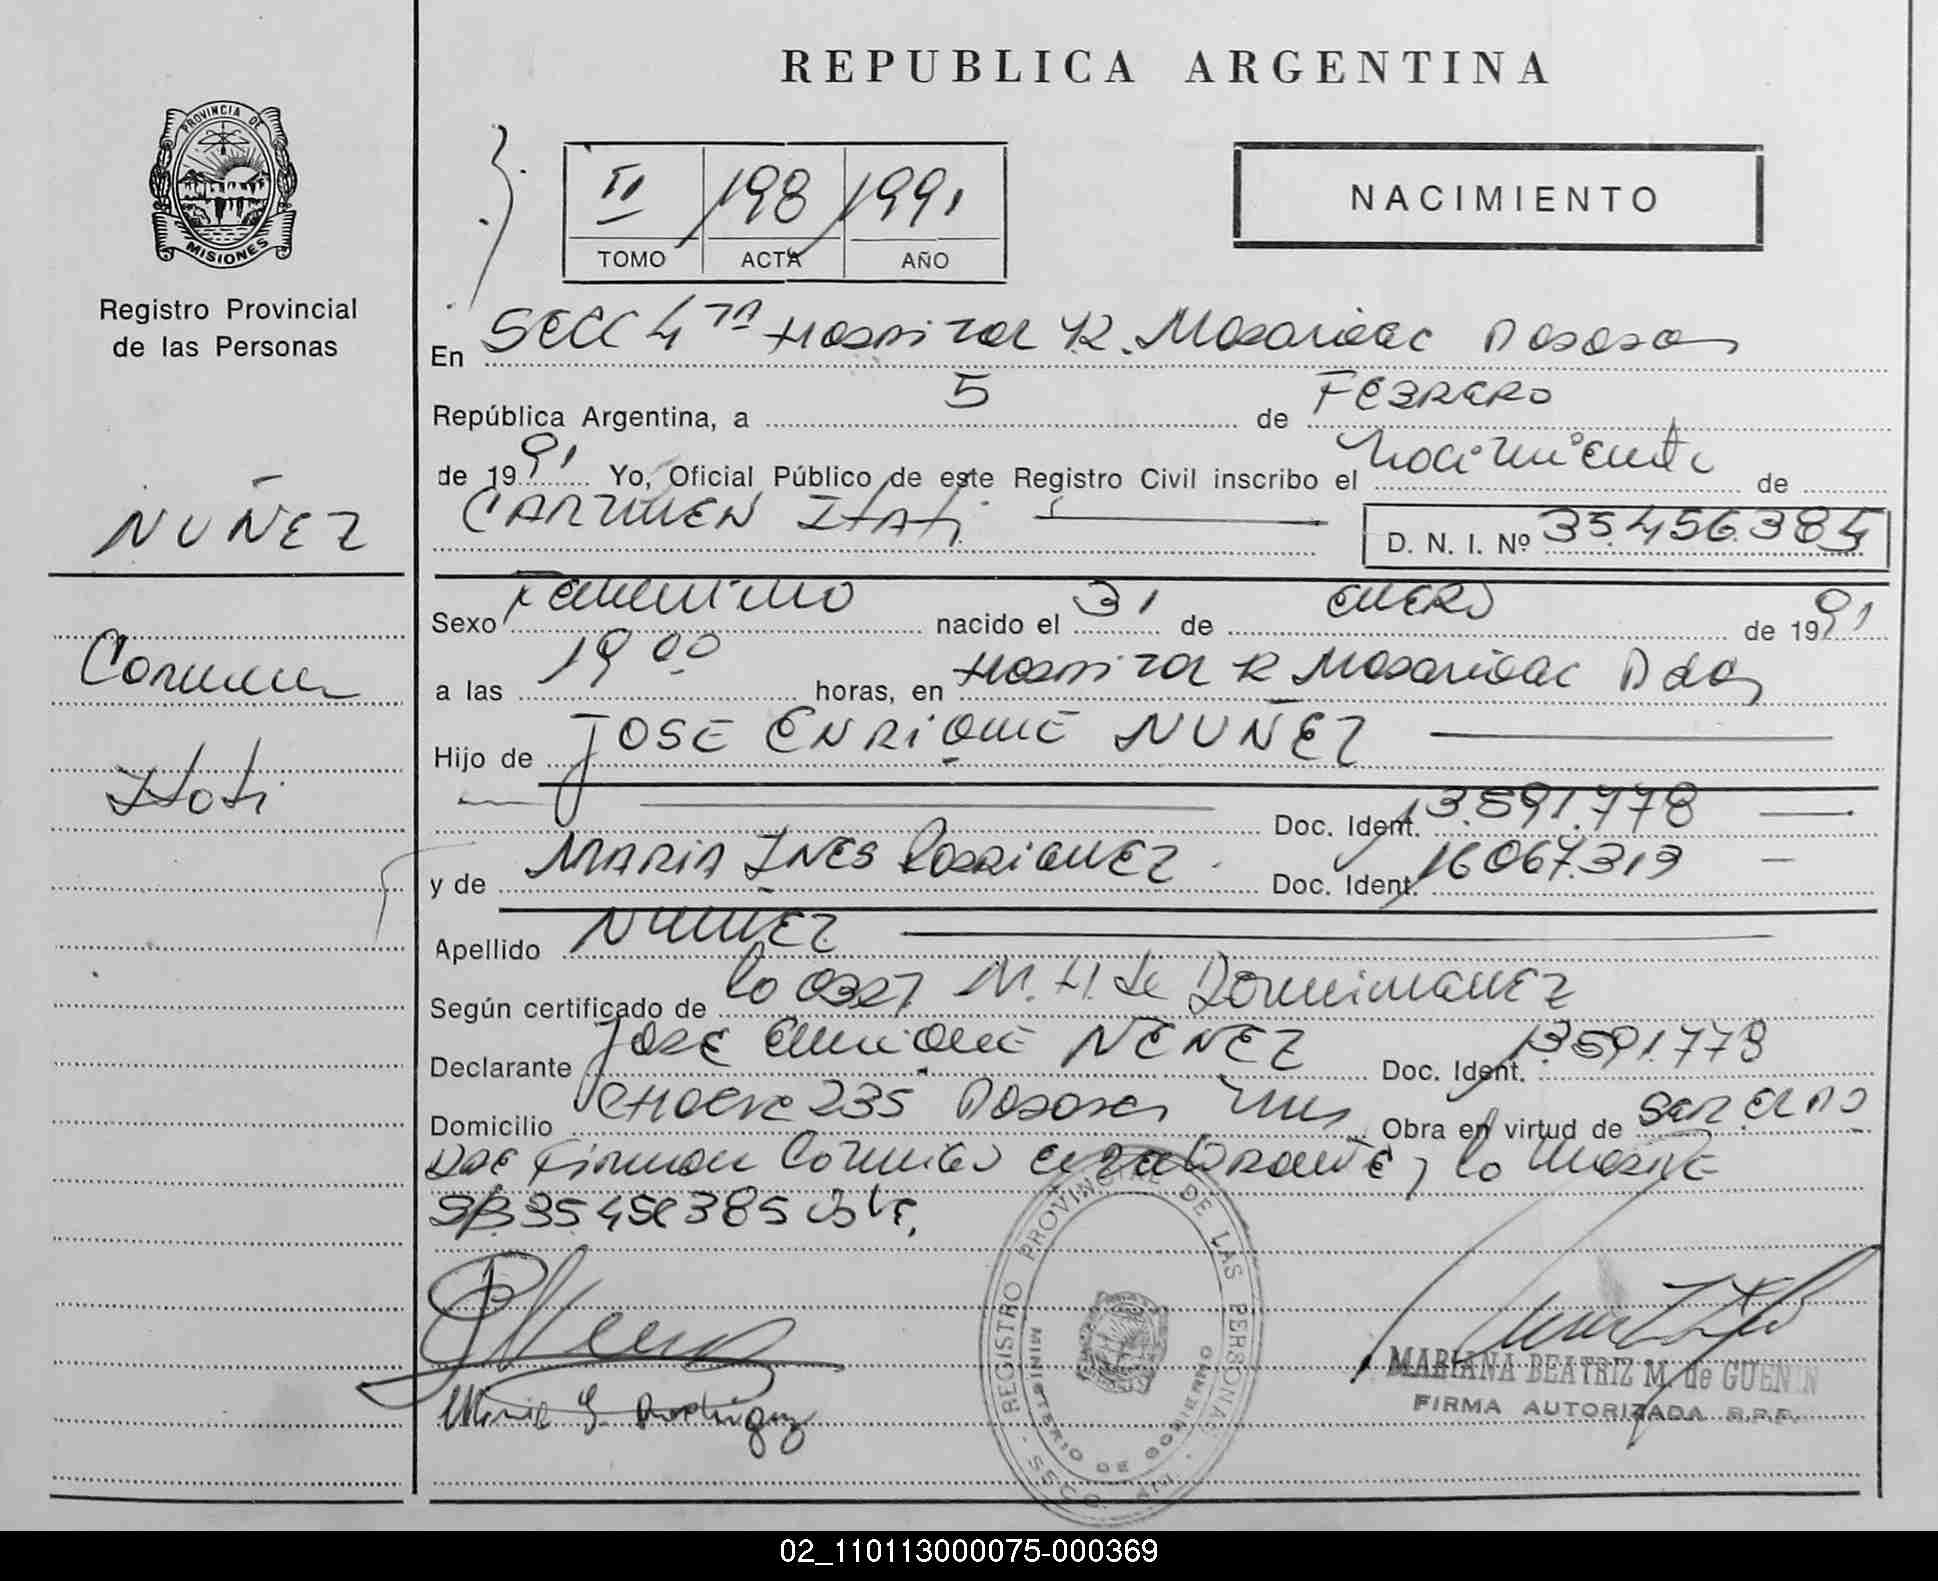 REPUBLICA ARGENTINA
PROVINCIA DE
MISIONES
Registro Provincial
de las Personas
II 198 1991
TOMO ACTA AÑO
NACIMIENTO
En SECC 4ta Hospital R. Madariaga Posadas
República Argentina, a 5 de FEBRERO
de 1991 Yo, Oficial Público de este Registro Civil inscribo el nacimiento de
CARMEN ITATI D. N. I. Nº 35.456.384
NUÑEZ
Carmen
Itati
Sexo Femenino nacido el 31 de ENERO de 1991
a las 19 00 horas, en Hospital R Madariaga Pdas
Hijo de JOSE ENRIQUE NUÑEZ
Doc. Ident. 13.591.778
y de MARIA INES RODRIGUEZ Doc. Ident. 16067.319
Apellido NUÑEZ
Según certificado de la M. H. de
Declarante JOSE ENRIQUE Doc. Ident. 13591.778
Domicilio 235 Posadas Mnes Obra en virtud de ser el
Firman y la madre
Maria Y. Rodriguez
REGISTRO PROVINCIAL DE LAS PERSONAS
MINISTERIO DE GOBIERNO
MARIANA BEATRIZ M. de GUENIN
FIRMA AUTORIZADA R.P.P.
02_110113000075-000369